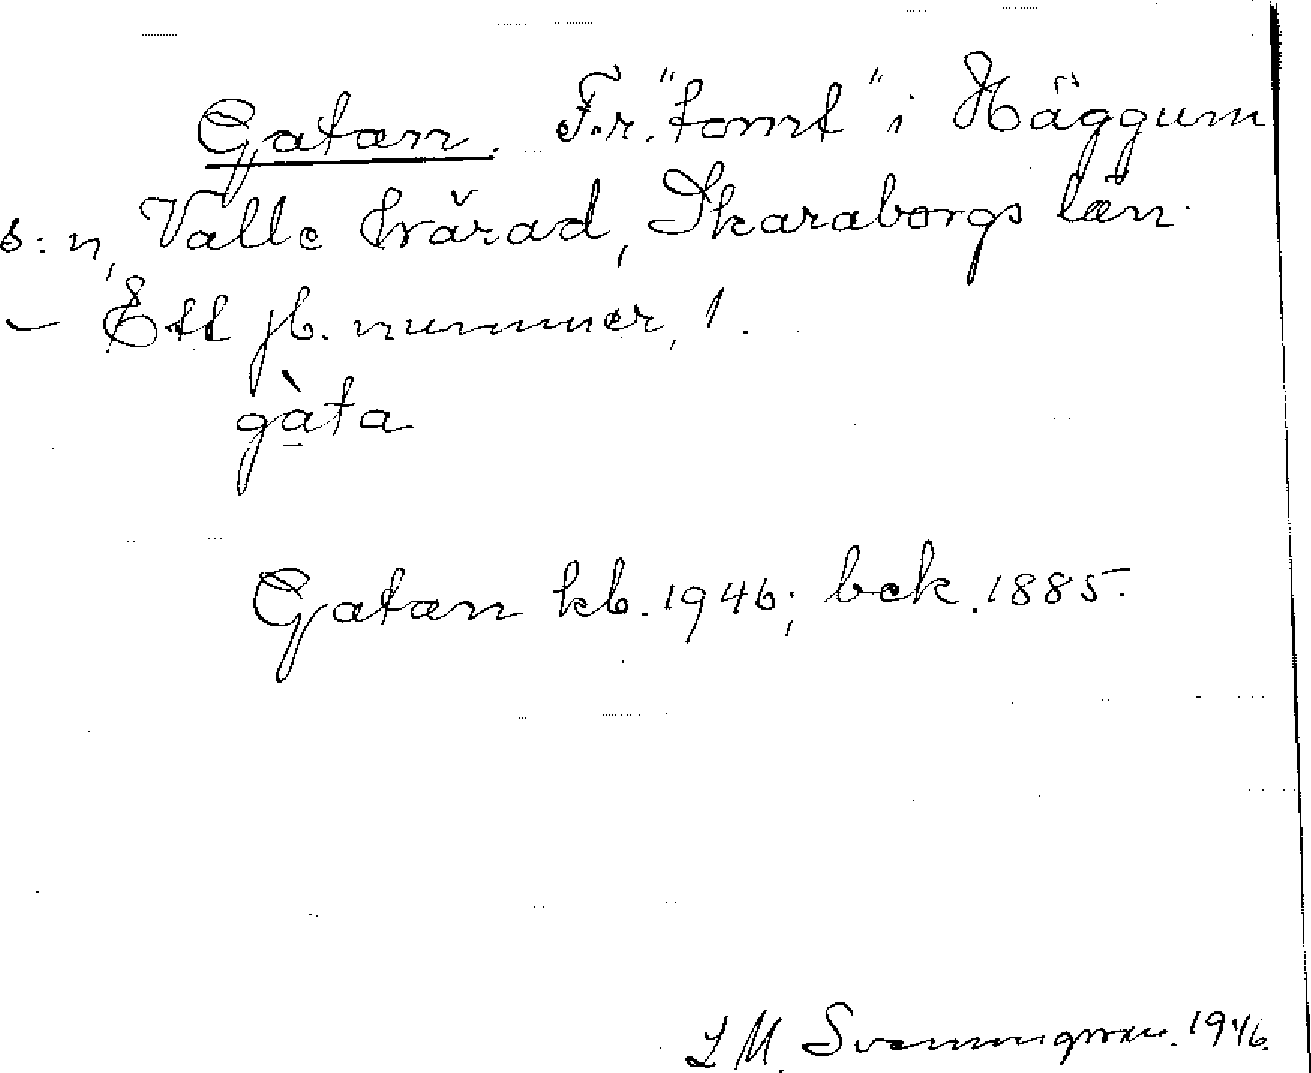 Gatan. F.r. "tomt" i Häggum
s:n, Valle härad, Skaraborgs län.
– Ett jb. nummer, 1.
gàta
Gatan kb. 1946; bek. 1885.
L M. Svenungsson. 1946.